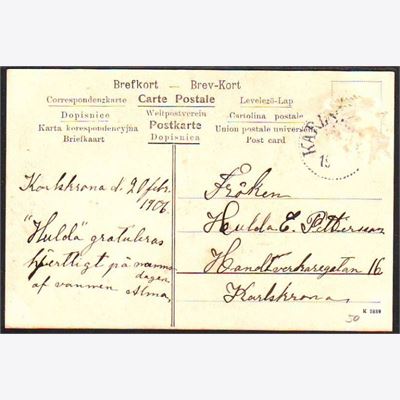 Brefkort — Brev-Kort
Correspondenzkarte Carte Postale Levelező-Lap
Dopisnice Weltpostverein Cartolina postale
Karta korespondencyjna Postkarte Union postale universelle
Briefkaart Dopisnica Post card
KARLS
19
Karlskrona d. 20 febr.
1906.
"Hulda" gratuleras
hjertligt på namns
dagen
af vännen Alma.
Fröken
Hulda E. Pettersson
Handtverkaregatan 16
Karlskrona.
50